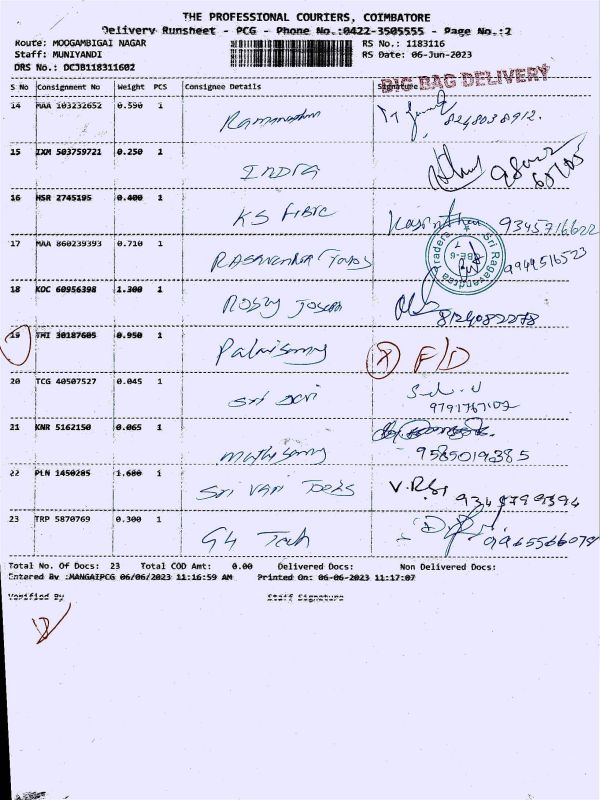 THE PROFESSIONAL COURIERS, COIMBATORE
Delivery Runsheet - PCG - Phone No.:0422-3505555 - Page No.:2
Route: MOOGAMBIGAI NAGAR
RS No.: 1183116
Staff: MUNIYANDI
RS Date: 06-Jun-2023
DRS No.: DCJB118311602
BIG BAG DELIVERY
S No Consignment No Weight PCS Consignee Details Signature
14 MAA 103232652 0.590 1
8248038912.
15 IXM 503759721 0.250 1 INDRA
16 HSR 2745195 0.400 1 KS FIBRC
9345716622
17 MAA 860239393 0.710 1
Sri Ragavendraa Traders
CBE-6
9942516523
18 KOC 60956398 1.300 1 Roshy Joseph
8124082278
19 TMI 30187605 0.950 1 Palanisamy X F/D
20 TCG 40507527 0.045 1 Sri Devi
9791767102
21 KNR 5162150 0.065 1 Mathisamy
9585019385
22 PLN 1450285 1.680 1 Sri Van Tools V.RSI
23 TRP 5870769 0.300 1 G4 Tech
9965566079
Total No. Of Docs: 23 Total COD Amt: 0.00 Delivered Docs: Non Delivered Docs:
Entered By :MANGAIPCG 06/06/2023 11:16:59 AM Printed On: 06-06-2023 11:17:07
Verified By Staff Signature